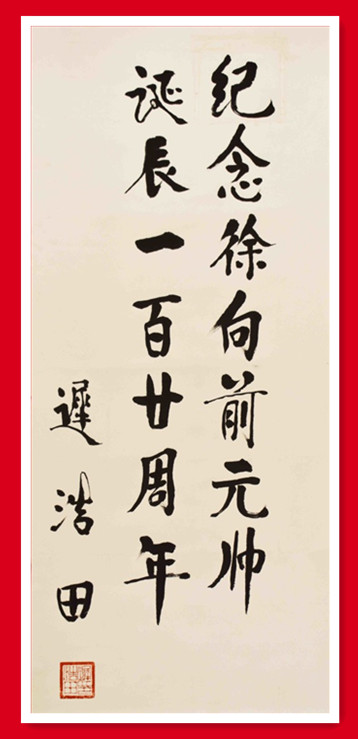 纪念徐向前元帅
诞辰一百廿周年
遲浩田